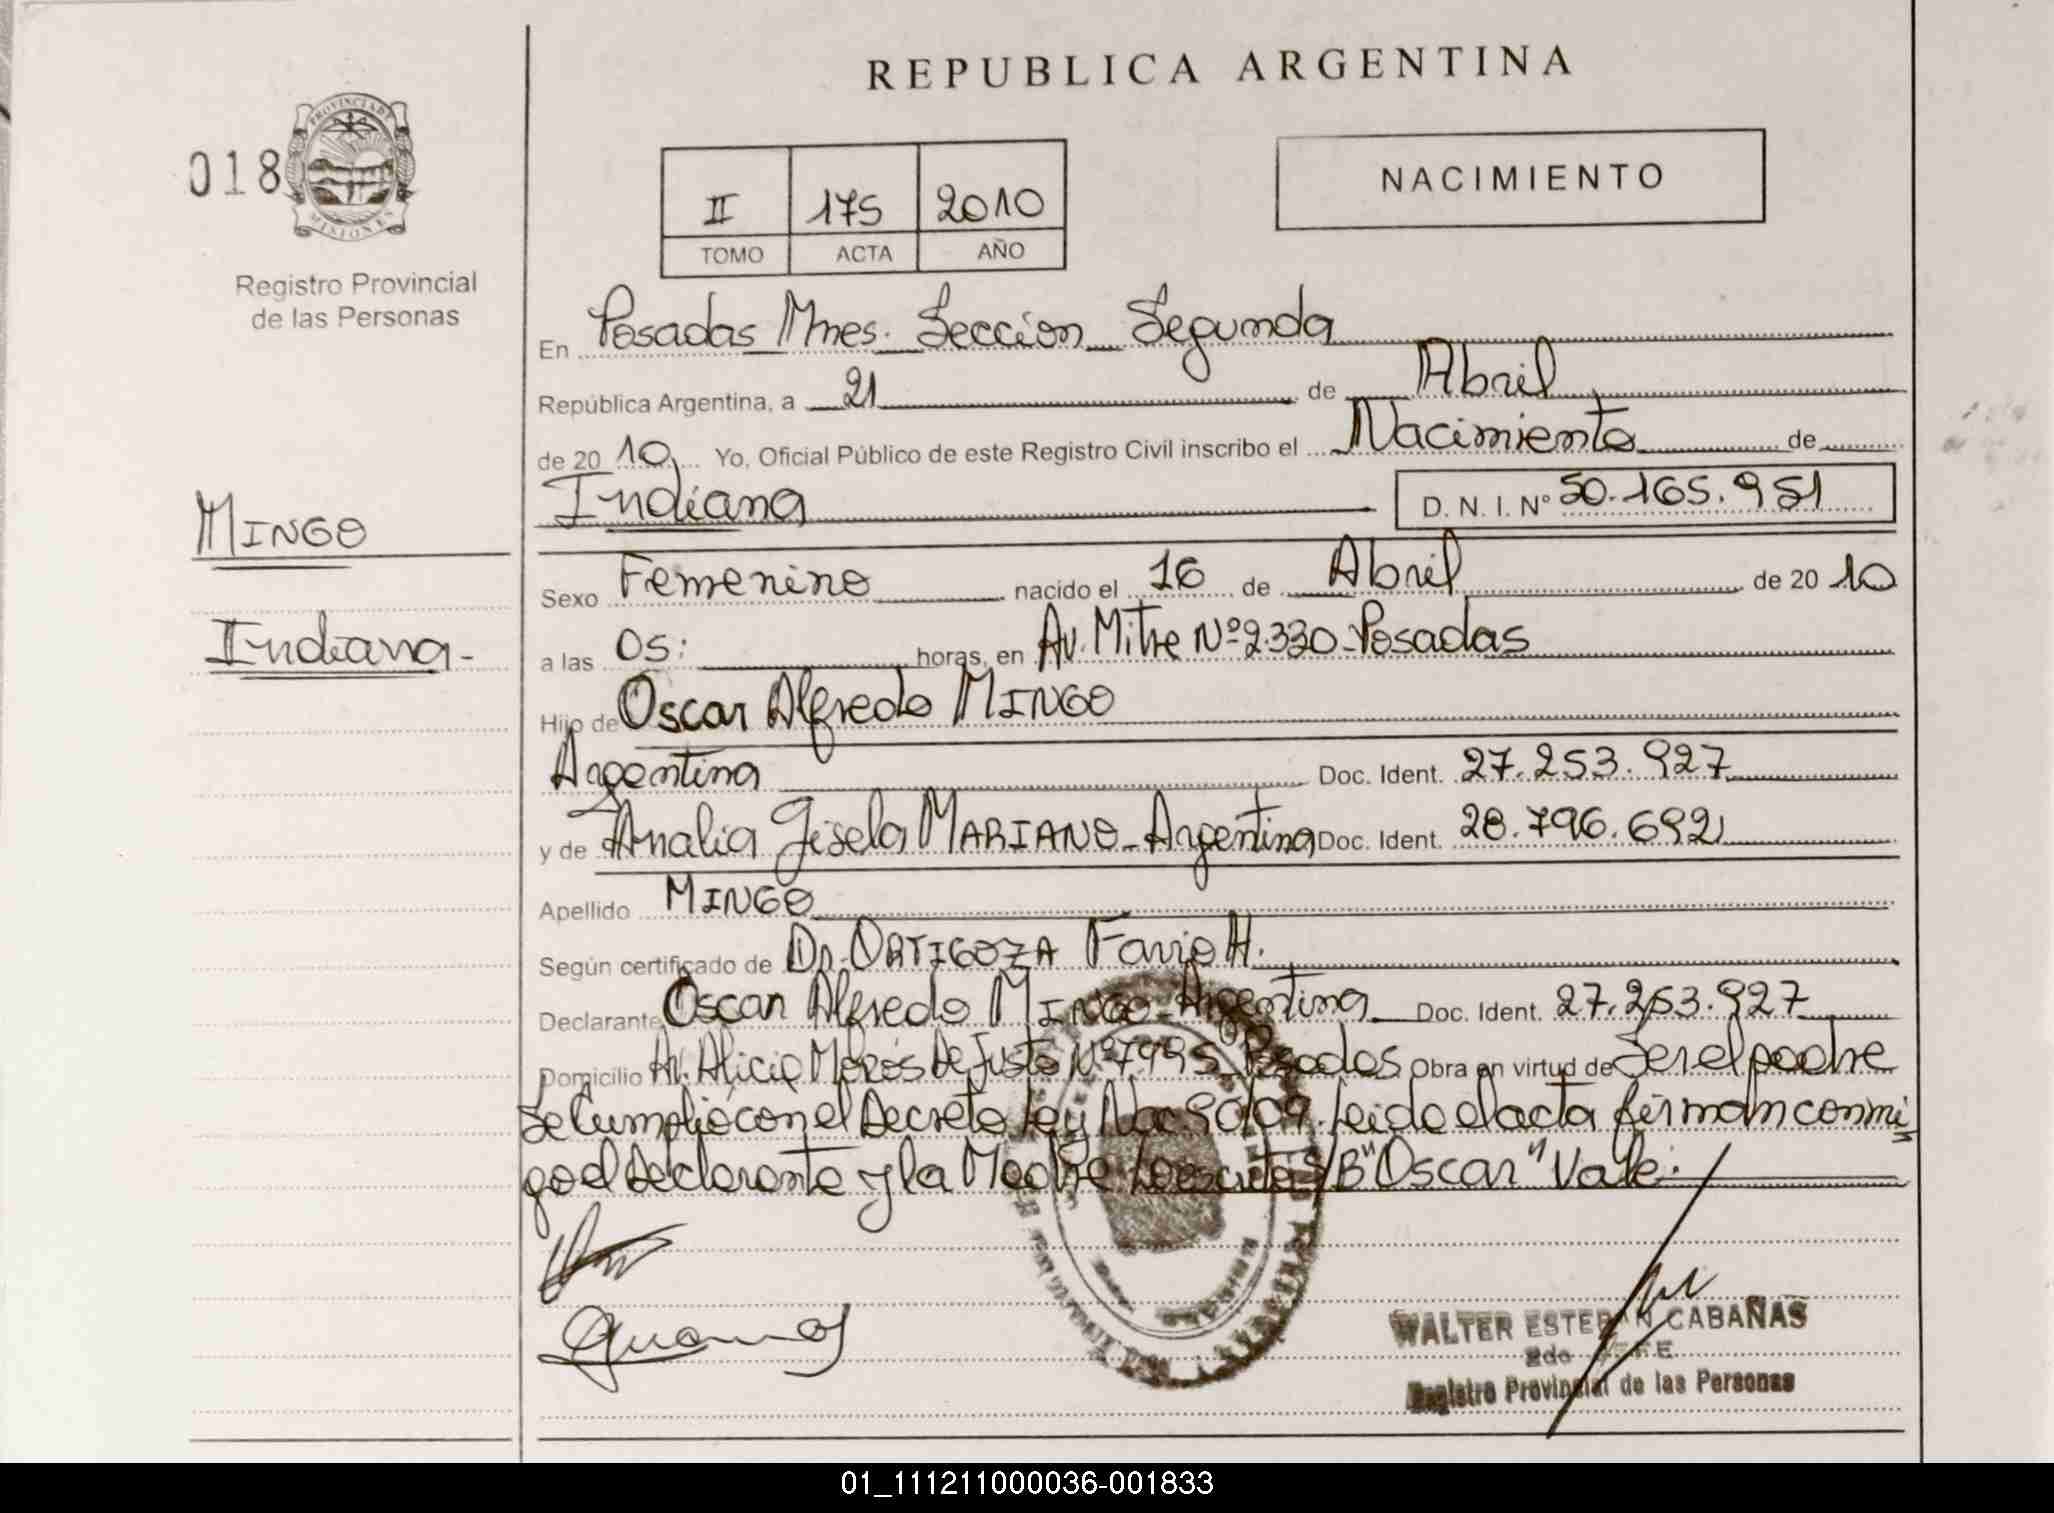 REPUBLICA ARGENTINA
018
PROVINCIA DE
MISIONES
Registro Provincial
de las Personas
II 175 2010
TOMO ACTA AÑO
NACIMIENTO
En Posadas Mnes. Sección Segunda
República Argentina, a 21 de Abril
de 2010 Yo, Oficial Público de este Registro Civil inscribo el Nacimiento de
Indiana D. N. I. Nº 50.165.951
MINGO
Indiana-
Sexo Femenino nacido el 16 de Abril de 2010
a las 05: horas, en Av. Mitre Nº 2.330-Posadas
Hijo de Oscar Alfredo MINGO
Argentina Doc. Ident. 27.253.927
y de Analia Gisela MARIANO-Argentina Doc. Ident. 28.796.692
Apellido MINGO
Según certificado de Dr. ORTIGOZA Favio H.
Declarante Oscar Alfredo MINGO-Argentina Doc. Ident. 27.253.927
Domicilio Av. Alicia Morós De Justo Nº 7995 Posadas Obra en virtud de Ser el padre
Se Cumplió con el Decreto Ley Nac. 90/09. Leido el acta firman conmi
go el Declarante y la Madre Lo escrito S/B "Oscar" Vale.
WALTER ESTEBAN CABAÑAS
2do JEFE
Registro Provincial de las Personas
01_111211000036-001833